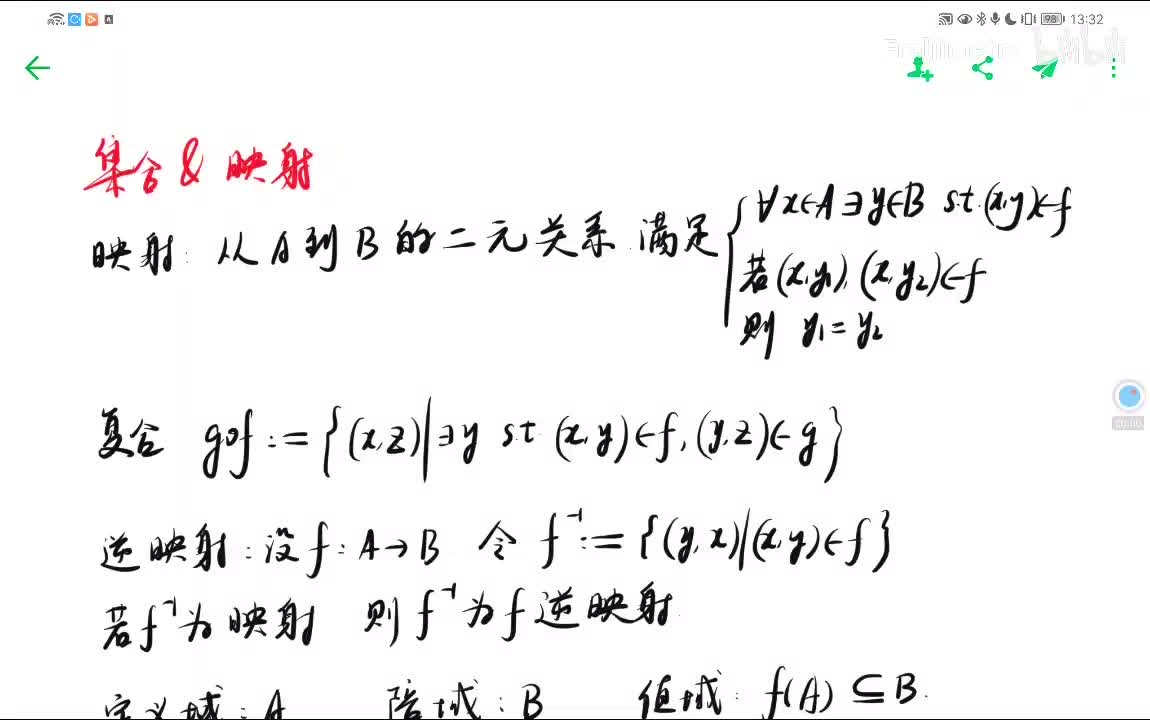 13:32
98
bilibili
集合 & 映射
映射: 从 A 到 B 的二元关系 满足
∀x∈A ∃y∈B s.t. (x,y)∈f
若(x,y₁), (x,y₂)∈f
则 y₁=y₂
复合 g∘f := {(x,z)|∃y s.t (x,y)∈f, (y,z)∈g}
逆映射: 设 f: A→B 令 f⁻¹:={(y,x)|(x,y)∈f}
若f⁻¹为映射 则f⁻¹为f逆映射.
定义域: A 陪域: B 值域: f(A)⊆B.